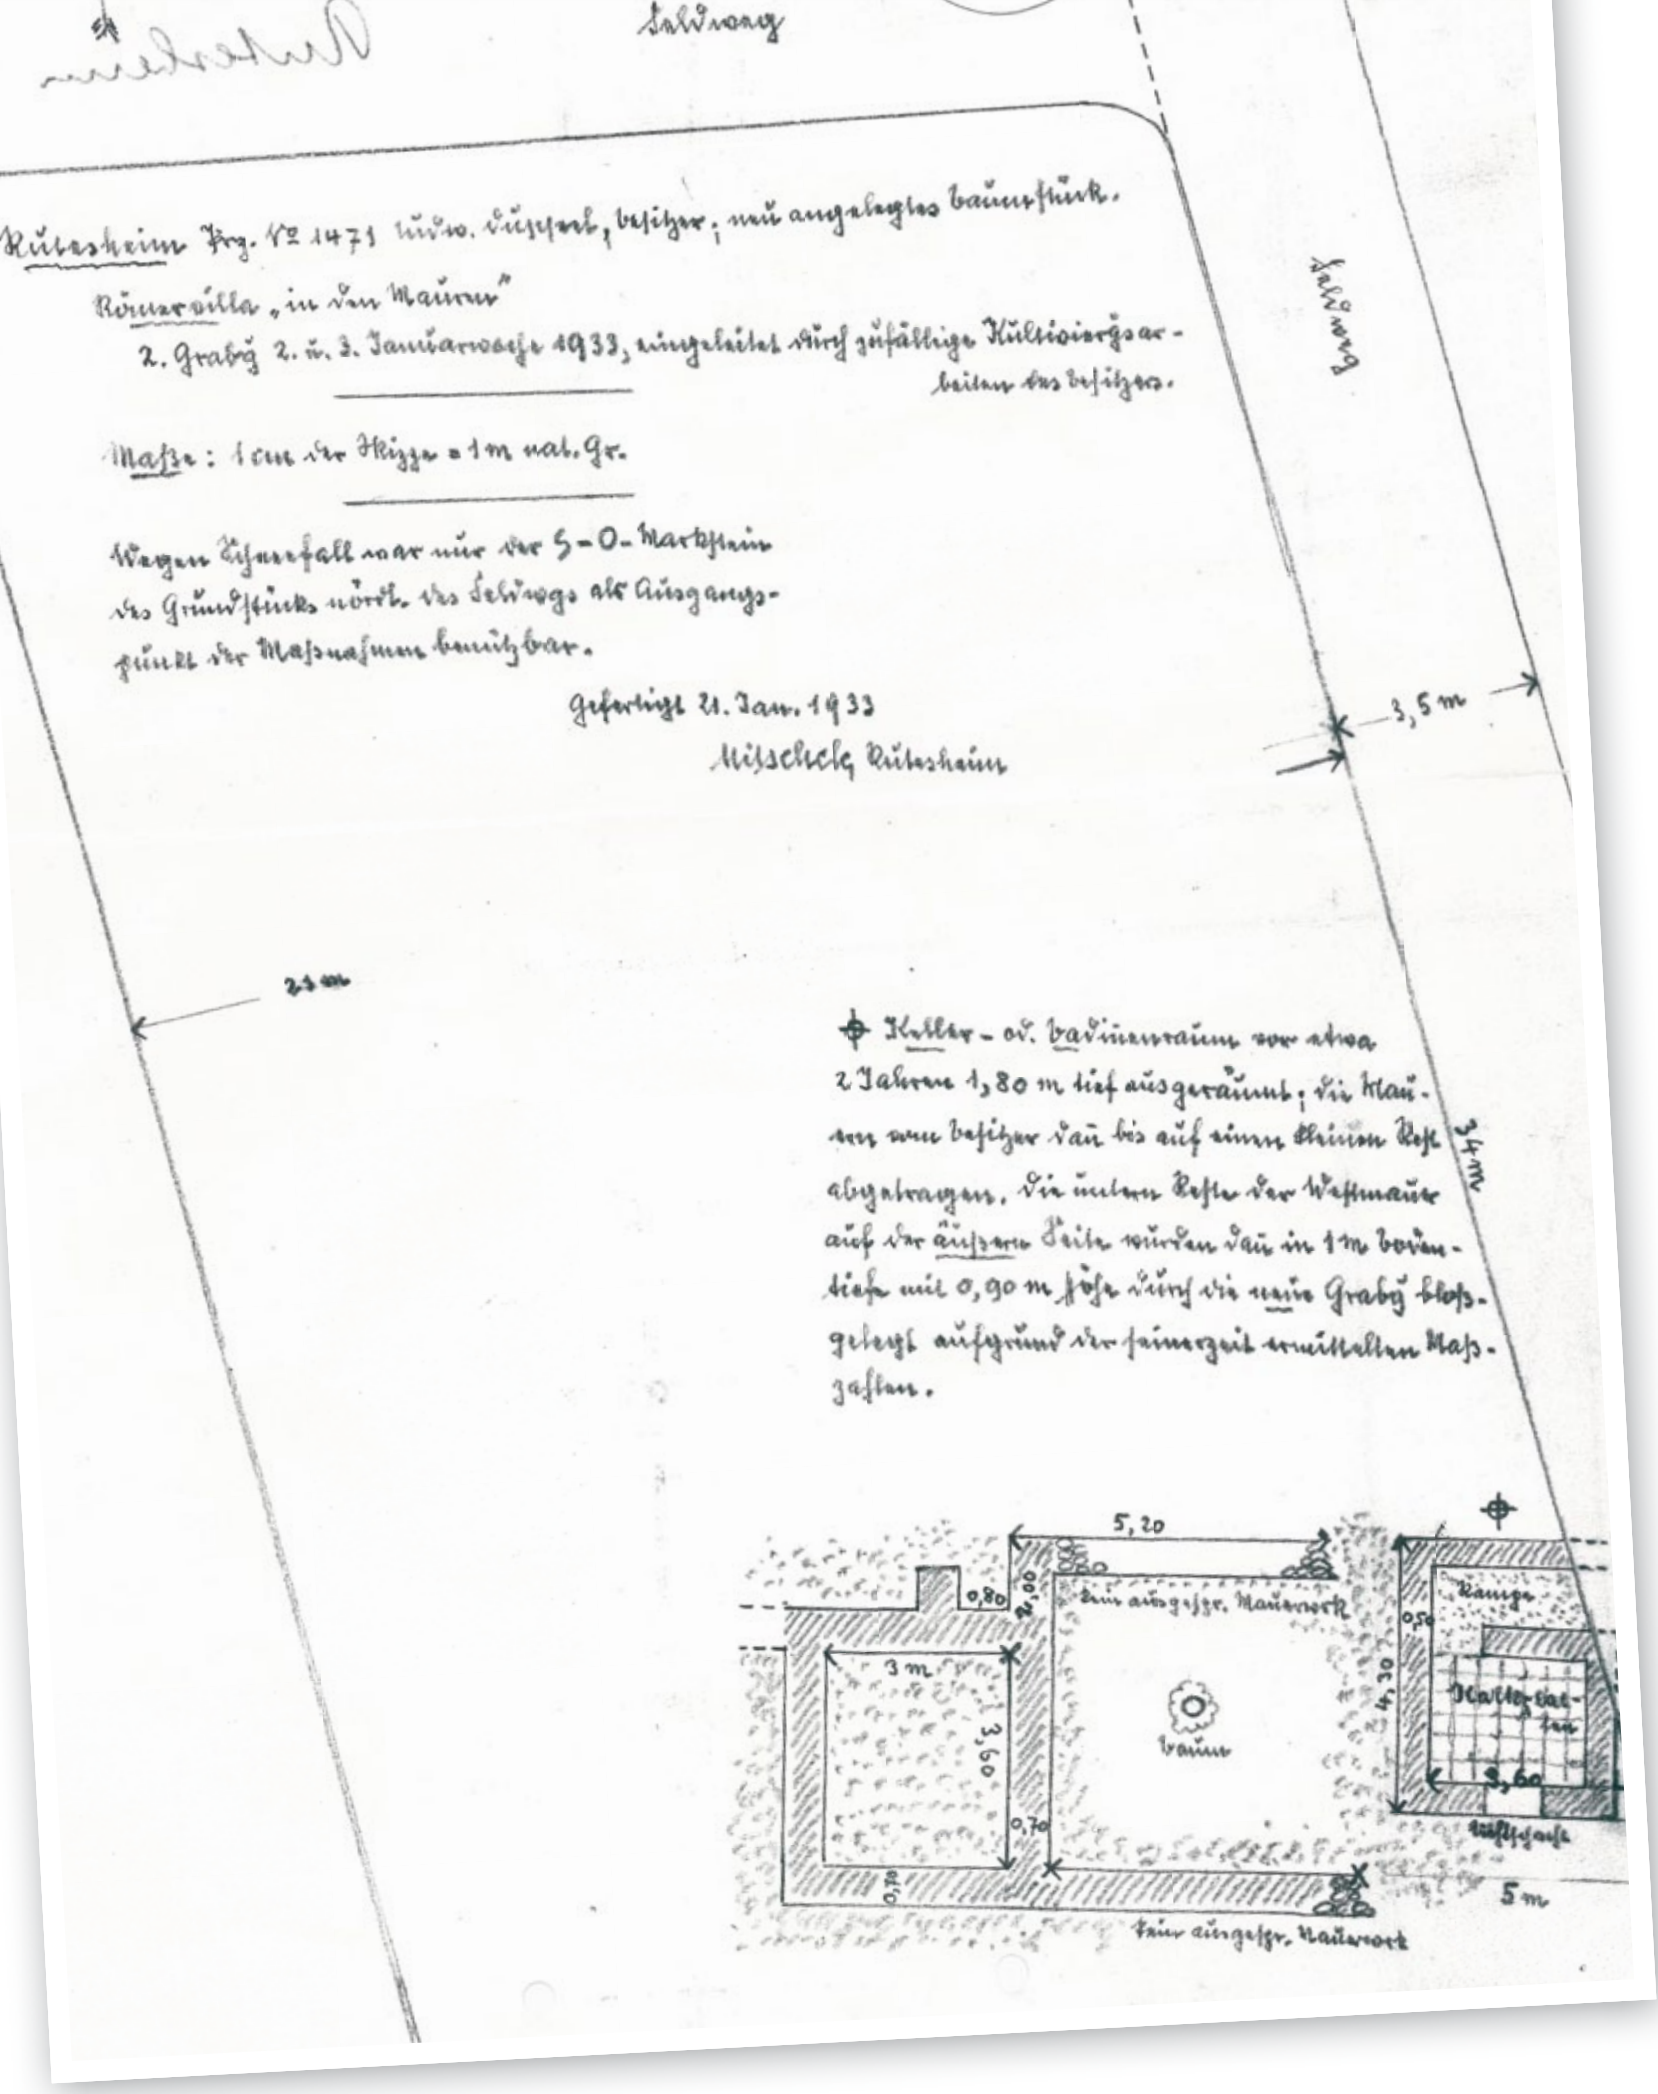 Rutesheim
Feldweg
Rutesheim Prz. No 1471 Ludw. Duppel, Besitzer; neu angelegtes Baumstück.
Römervilla „in den Mauren"
2. Grabg 2. u. 3. Januarwoche 1933, eingeleitet durch zufällige Kultiviergsar-
beiten des Besitzers.
Feldweg
Maße: 1 cm der Skizze = 1 m nat. Gr.
Wegen Schneefall war nur der S-O-Markstein
des Grundstücks nördl. des Feldwgs als Ausgangs-
punkt der Maßnahmen benützbar.
Gefertigt 21. Jan. 1933
Rutesheim
3,5 m
21 m
Keller- od. Badinenraum vor etwa
2 Jahren 1,80 m tief ausgeräumt; die Mau-
ern vom Besitzer dañ bis auf einen kleinen Rest
abgetragen. Die untern Reste der Westmauer
auf der äußern Seite wurden dañ in 1 m Boden-
tiefe mit 0,90 m Höhe durch die neue Grabg bloß-
gelegt aufgrund der seinerzeit ermittelten Maß-
zahlen.
34 m
5,20
0,80
2,00
kein ausgespr. Mauerwerk
Rampe
0,50
3 m
3,60
4,30
Baum
3,60
Luftschacht
0,70
0,70
5 m
kein ausgespr. Mauerwerk